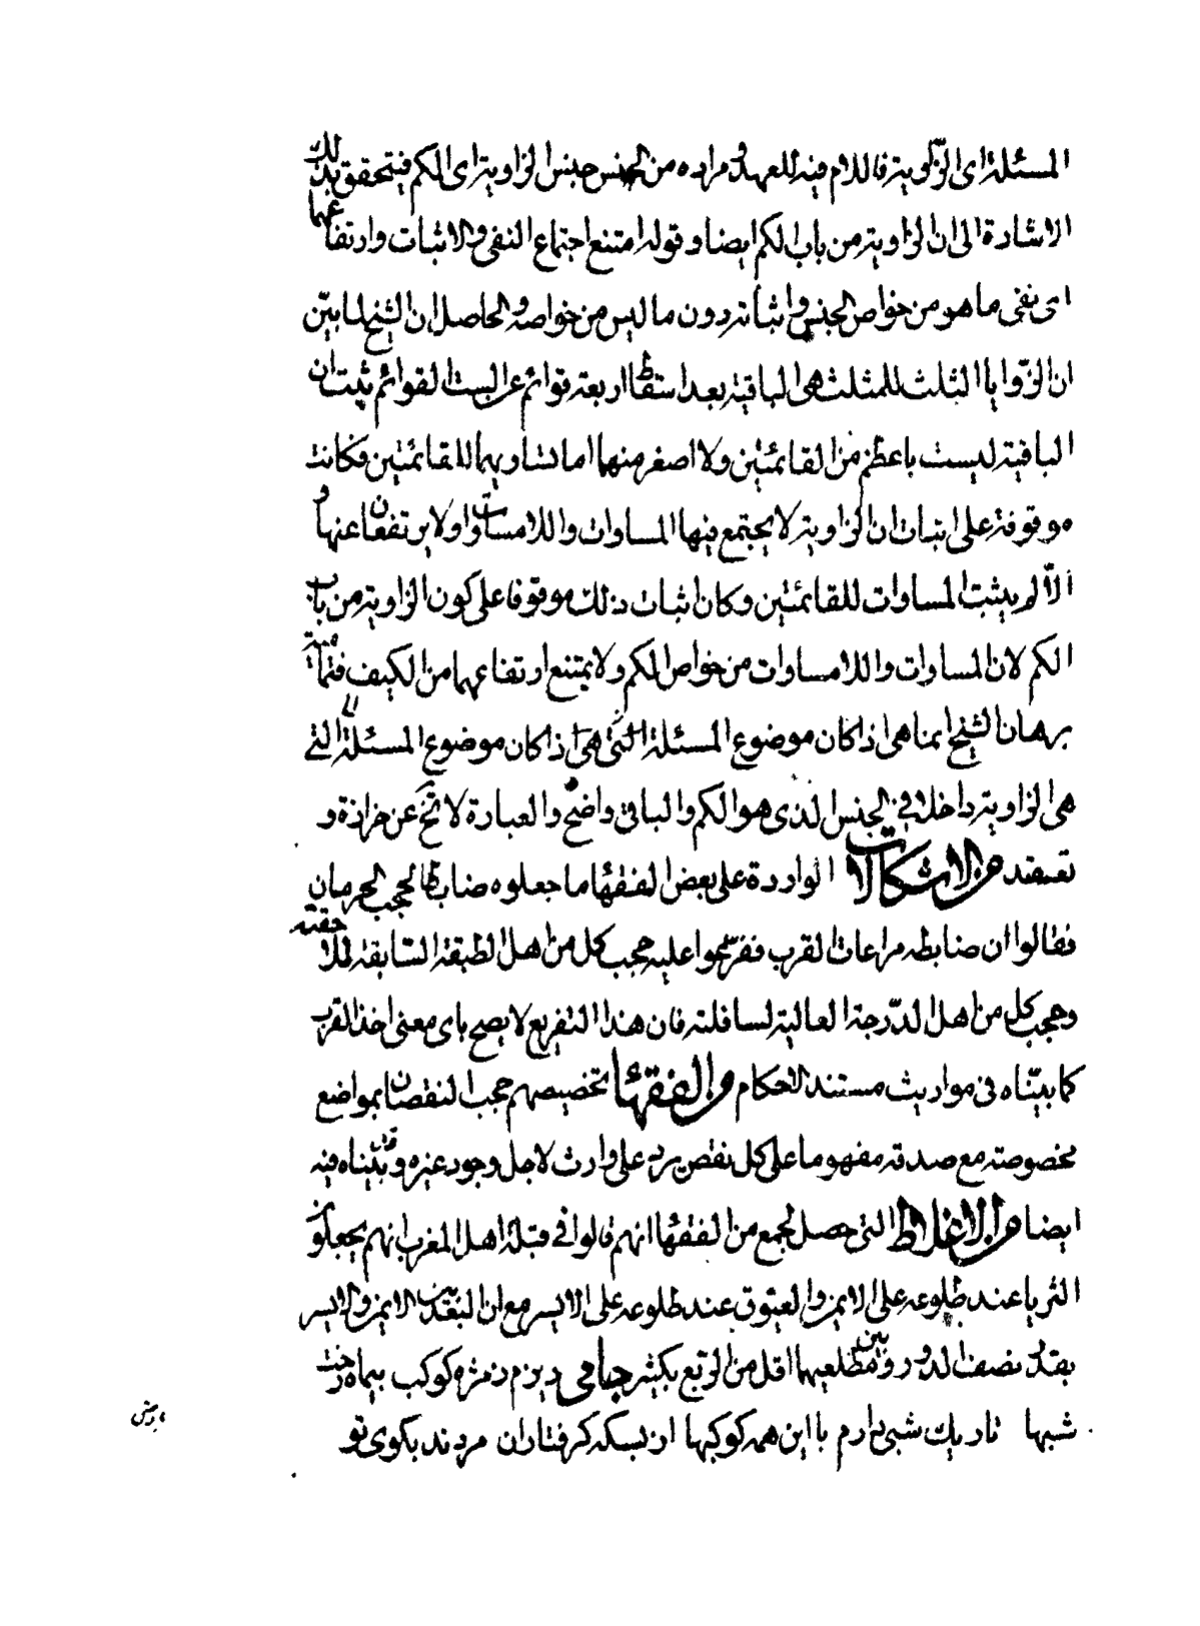 المسئلة اى الزّاوية فاللام فيه للعهد و مراده من الجنس جنس الزاوية اى الكم فيتحقق بذلك
الاشارة الى ان الزاوية من باب الكم ايضا و قوله امتنع اجتماع النفى والاثبات وارتفاعهما
اى نفى ما هو من خواص الجنس و اثباته دون ما ليس من خواصه والحاصل ان الشيخ لما بيّن
ان الزّوايا الثلث للمثلث هى الباقية بعد اسقاط اربعة قوائم عن الست القوائم ثبت ان
الباقية ليست باعظم من القائمتين ولا اصغر منهما اما تساويهما للقائمتين فكانت
موقوفة على اثبات ان الزاوية لا يجتمع فيها المساوات واللامساوات ولا يرتفعان عنها و
الّا لم يثبت المساوات للقائمتين وكان اثبات ذلك موقوفا على كون الزاوية من باب
الكم لان المساوات واللامساوات من خواص الكم ولا يمتنع ارتفاعهما من الكيف فتمامية
برهان الشيخ انما هى اذا كان موضوع المسئلة التى هى اذا كان موضوع المسئلة التى
هى الزاوية داخلا فى الجنس الذى هو الكم والباقى واضح والعبارة لا تخ عن حزازة و
تعقيد من الاشكالات الواردة على بعض الفقهاء ما جعلوه ضابطا لحجب الحرمان
فقالوا ان ضابطه مراعات القرب ففرّعوا عليه حجب كل من اهل الطبقة السّابقة للاحقته
وحجب كل من اهل الدّرجة العالية لسافلته فان هذا التفريع لا يصح باى معنى اخذ القرب
كما بيّناه فى مواريث مستند الاحكام والفقهاء تخصيصهم حجب النقصان بمواضع
مخصوصة مع صدقه مفهوما على كل نقص يرد على وارث لاجل وجود غيره وقد بيّناه فيه
ايضا من الاغلاط التى حصل لجمع من الفقهاء انهم قالوا فى قبلة اهل المغرب انهم يجعلون
الثريا عند طلوعه على الايمن والعيّوق عند طلوعه على الايسر مع ان البعد بين الايمن والايسر
بقدر نصف الدور و بين مطلعيهما اقل من الربع بكثير جامى ديزم ز مژه كوكب بيماه رخت
شبها تاريك شبى دارم با اين همه كوكبها از بسكه گرفتاران مردند بكوى تو